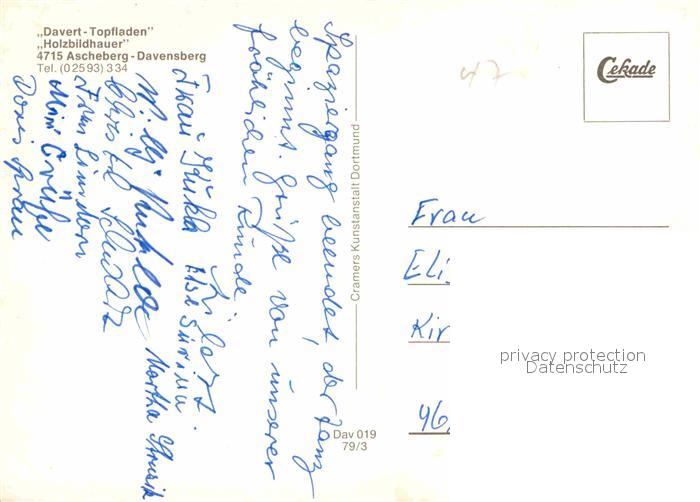 „Davert-Topfladen"
„Holzbildhauer"
4715 Ascheberg-Davensberg
Tel. (02593) 334
Spaziergang beendet, der Tanz
beginnt. Grüße von unserer
fröhlichen Runde
Frau
Else
Willy
Martha
Christel
Frau Lindorn
Mimi Grühl
Doris
Cramers Kunstanstalt Dortmund
Dav 019
79/3
47
Cekade
Frau
Eli
Kir
46
privacy protection
Datenschutz